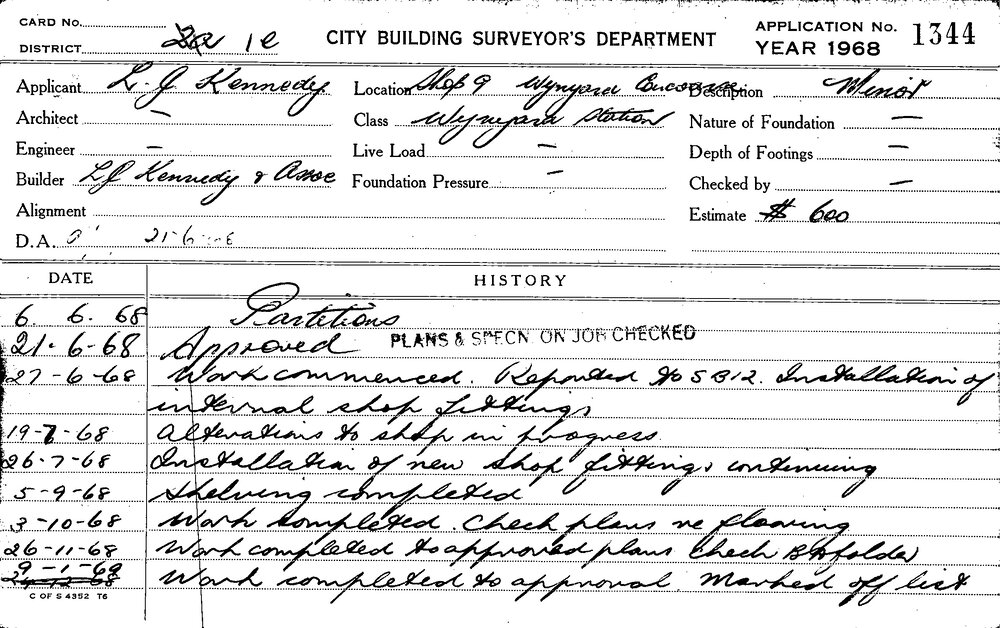 CARD No.
DISTRICT 1e
CITY BUILDING SURVEYOR'S DEPARTMENT
APPLICATION No. 1344
YEAR 1968
Applicant L. J. Kennedy
Location Shop 9 Wynyard Concourse
Description Minor
Architect —
Class Wynyard Station
Nature of Foundation —
Engineer —
Live Load —
Depth of Footings —
Builder LJ Kennedy & Assoc
Foundation Pressure —
Checked by —
Alignment
Estimate $ 600
D.A. 21-6
DATE HISTORY
6. 6. 68 Partitions
21. 6-68 Approved PLANS & SPECN. ON JOB CHECKED
27-6-68 Work commenced. Reported to SB12. Installation of
internal shop fittings
19-7-68 Alterations to shop in progress
26-7-68 Installation of new shop fittings continuing
5-9-68 Shelving completed
3-10-68 Work completed. Check plans re flooring
26-11-68 Work completed to approved plans check folder
9-1-69
Work completed to approval. Marked off list
C OF S 4352 T6